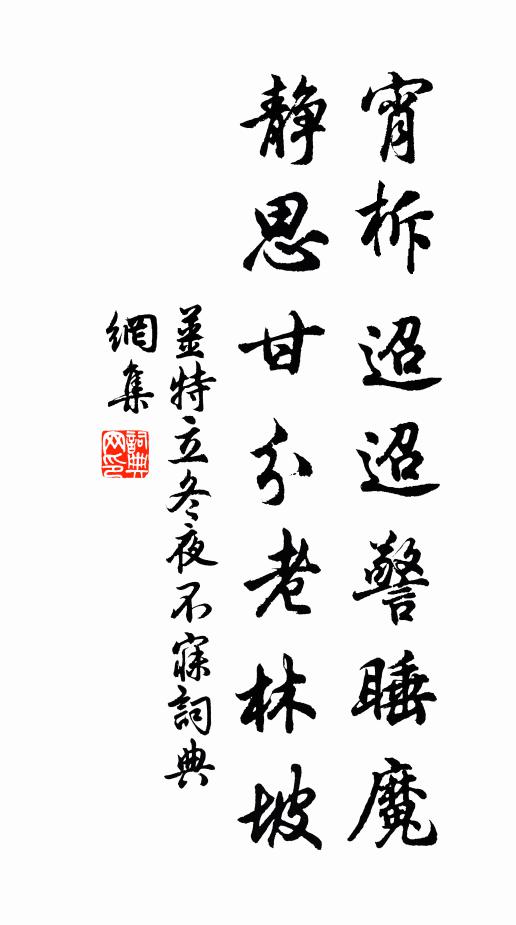 宵柝迢迢警睡魔
静思甘分老林坡
姜特立冬夜不寐詞典
網集
詞典网印